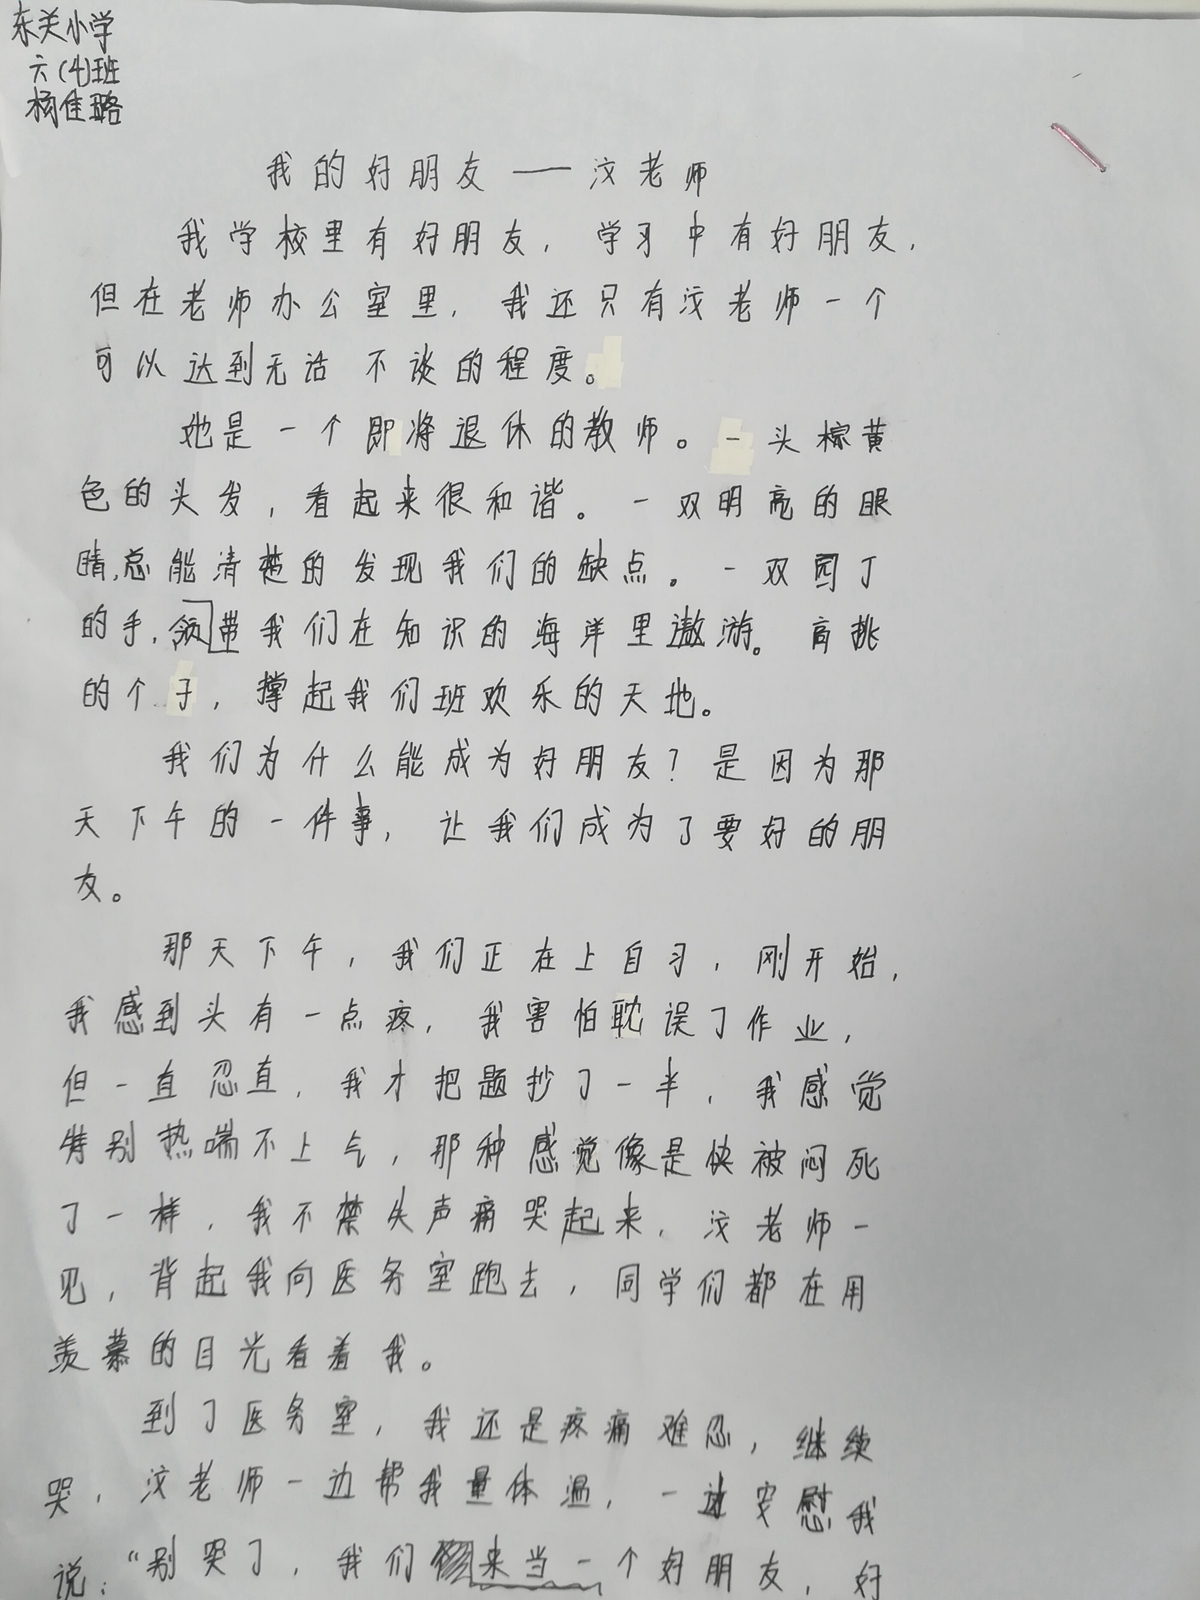 东关小学
六(4)班
杨佳璐
我的好朋友——汶老师
我学校里有好朋友，学习中有好朋友，
但在老师办公室里，我还只有汶老师一个
可以达到无话不谈的程度。
她是一个即将退休的教师。一头棕黄
色的头发，看起来很和谐。一双明亮的眼
睛，总能清楚的发现我们的缺点。一双园丁
的手，领带我们在知识的海洋里遨游。高挑
的个子，撑起我们班欢乐的天地。
我们为什么能成为好朋友？是因为那
天下午的一件事，让我们成为了要好的朋
友。
那天下午，我们正在上自习，刚开始，
我感到头有一点疼，我害怕耽误了作业，
但一直忍直，我才把题抄了一半，我感觉
特别热喘不上气，那种感觉像是快被闷死
了一样，我不禁失声痛哭起来，汶老师一
见，背起我向医务室跑去，同学们都在用
羡慕的目光看着我。
到了医务室，我还是疼痛难忍，继续
哭，汶老师一边帮我量体温，一边安慰我
说：“别哭了，我们来当一个好朋友，好